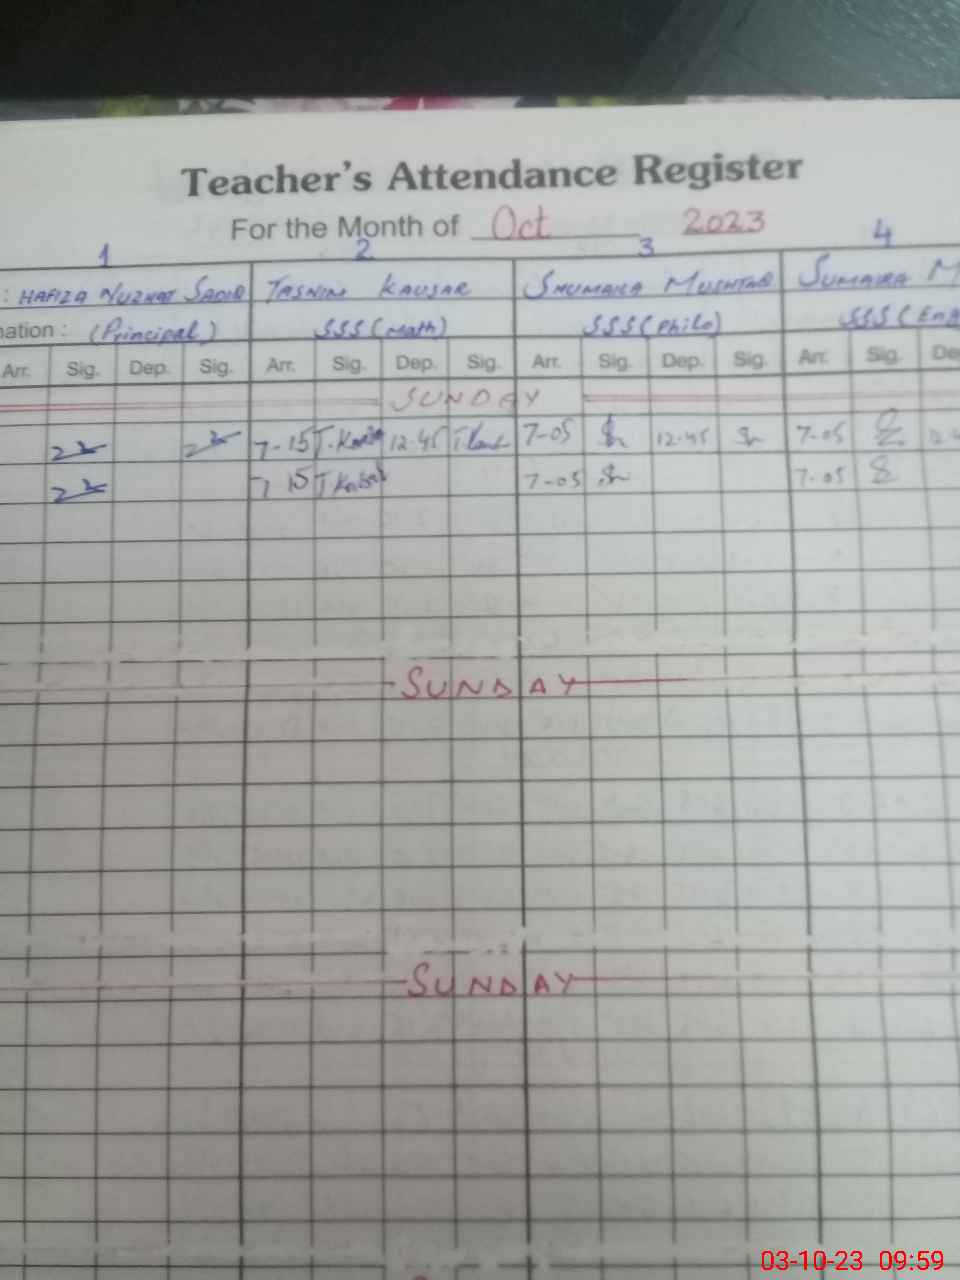 Teacher's Attendance Register
For the Month of Oct 2023
1 2 3 4
: HAFIZA NUZHAT SADIQ TASNIM KAUSAR SHUMAILA MUSHTAQ SUMAIRA M
nation : (Principal) SSS (Math) SSS (Philo) SSS (Eng
Arr. Sig. Dep. Sig. Arr. Sig. Dep. Sig. Arr. Sig. Dep. Sig. Arr. Sig. De
SUNDAY
7-15 12-45 7-05 12-45 7-05
7 15 7-05 7-05
SUNDAY
SUNDAY
03-10-23 09:59